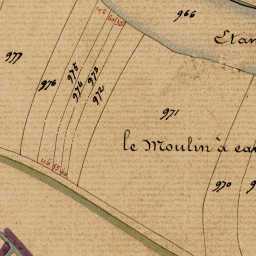 966
Etan
977
976
975
974
973
972
971
le Moulin à eau
970
969